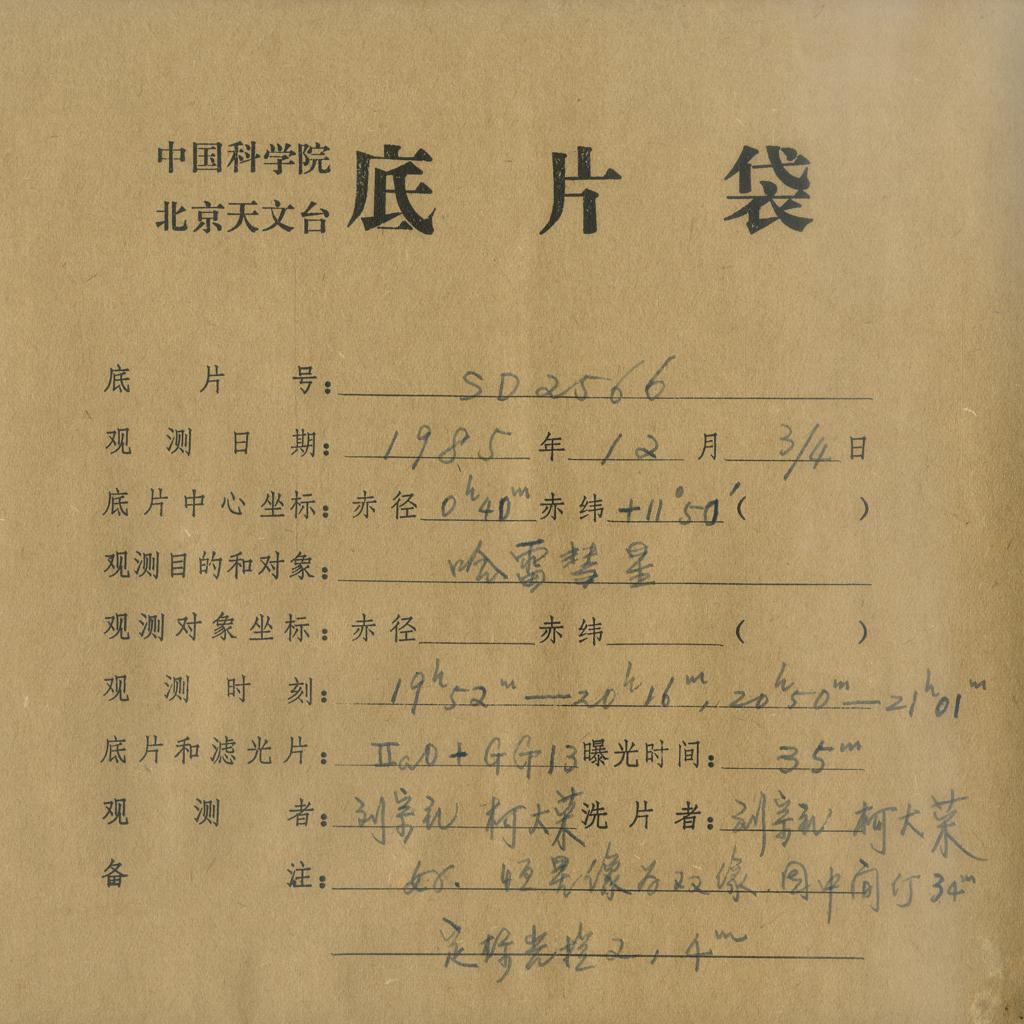 中国科学院
北京天文台
底片袋
底片号: SD2566
观测日期: 1985年12月3/4日
底片中心坐标: 赤径 0ʰ40ᵐ 赤纬 +11°50′( )
观测目的和对象: 哈雷彗星
观测对象坐标: 赤径 赤纬 ( )
观测时刻: 19ʰ52ᵐ—20ʰ16ᵐ, 20ʰ50ᵐ—21ʰ01ᵐ
底片和滤光片: IIaO + GG13 曝光时间: 35ᵐ
观测者: 刘宗礼 柯大荣 洗片者: 刘宗礼 柯大荣
备注: 好. 恒星像为双像 因中间停 34ᵐ
定标光楔 2, 4ᵐ